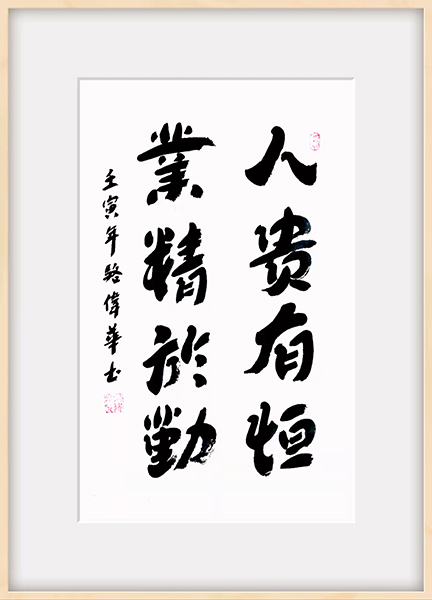 人贵有恒
業精於勤
壬寅年駱偉華书